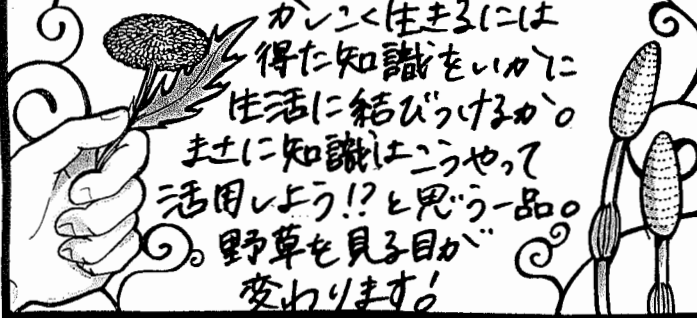 かしこく生きるには
得た知識をいかに
生活に結びつけるか。
まさに知識はこうやって
活用しよう!?と思う一品。
野草を見る目が
変わります!